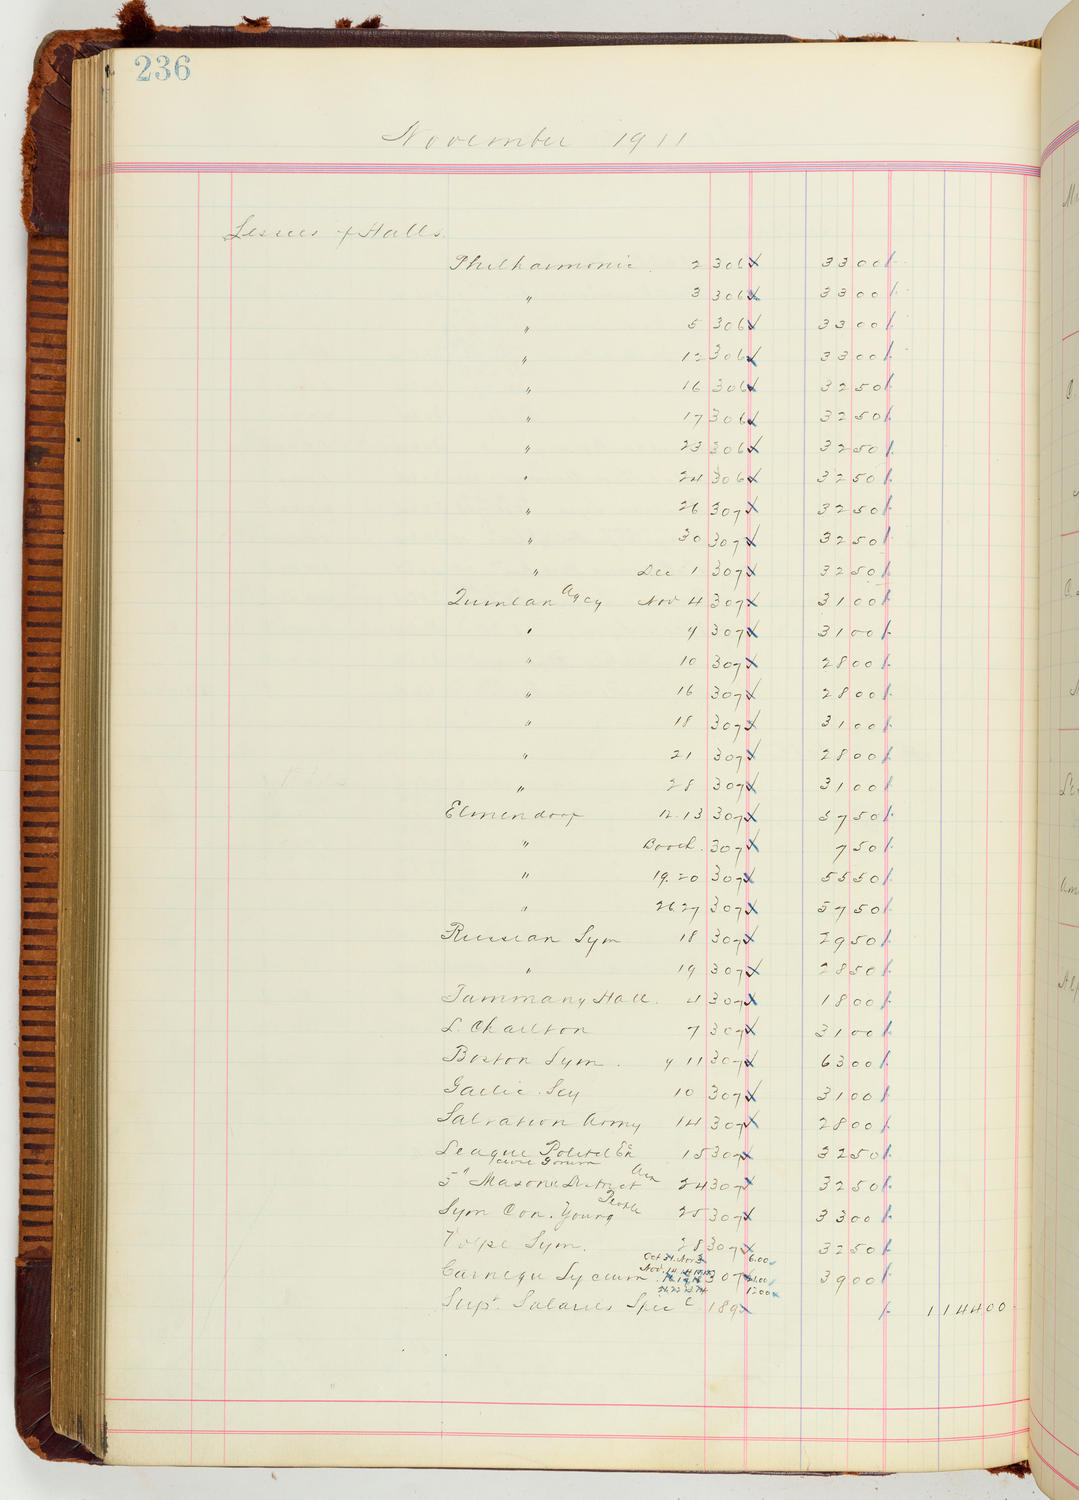 236
November 1911
Lessees of Halls.
Philharmonic 2 306 3300
" 3 306 3300
" 5 306 3300
" 12 306 3300
" 16 306 3250
" 17 306 3250
" 23 306 3250
" 24 306 3250
" 26 307 3250
" 30 307 3250
" Dec 1 307 3250
Quinlan Agcy Nov 4 307 3100
" 9 307 3100
" 10 307 2800
" 16 307 2800
" 18 307 3100
" 21 307 2800
" 28 307 3100
Elmendorf 12.13 307 5750
" 307 750
" 19.20 307 5550
" 26.27 307 5750
Russian Sym 18 307 2950
" 19 307 2850
Tammany Hall. 4 307 1800
L. Charlton 7 307 3100
Boston Sym. 9 11 307 6300
Gaelic Scy 10 307 3100
Salvation Army 14 307 2800
League Political Ed 15 307 3250
Civic Forum
5" Masonic District Assn 24 307 3250
Sym Con. Young People 25 307 3300
Volpe Sym. 28 307 3250
Oct Nov 3 6.00
Carnegie Lyceum Nov. 307 3900
21.22 12.00
Supt. Salaries Spec'l 189 114400